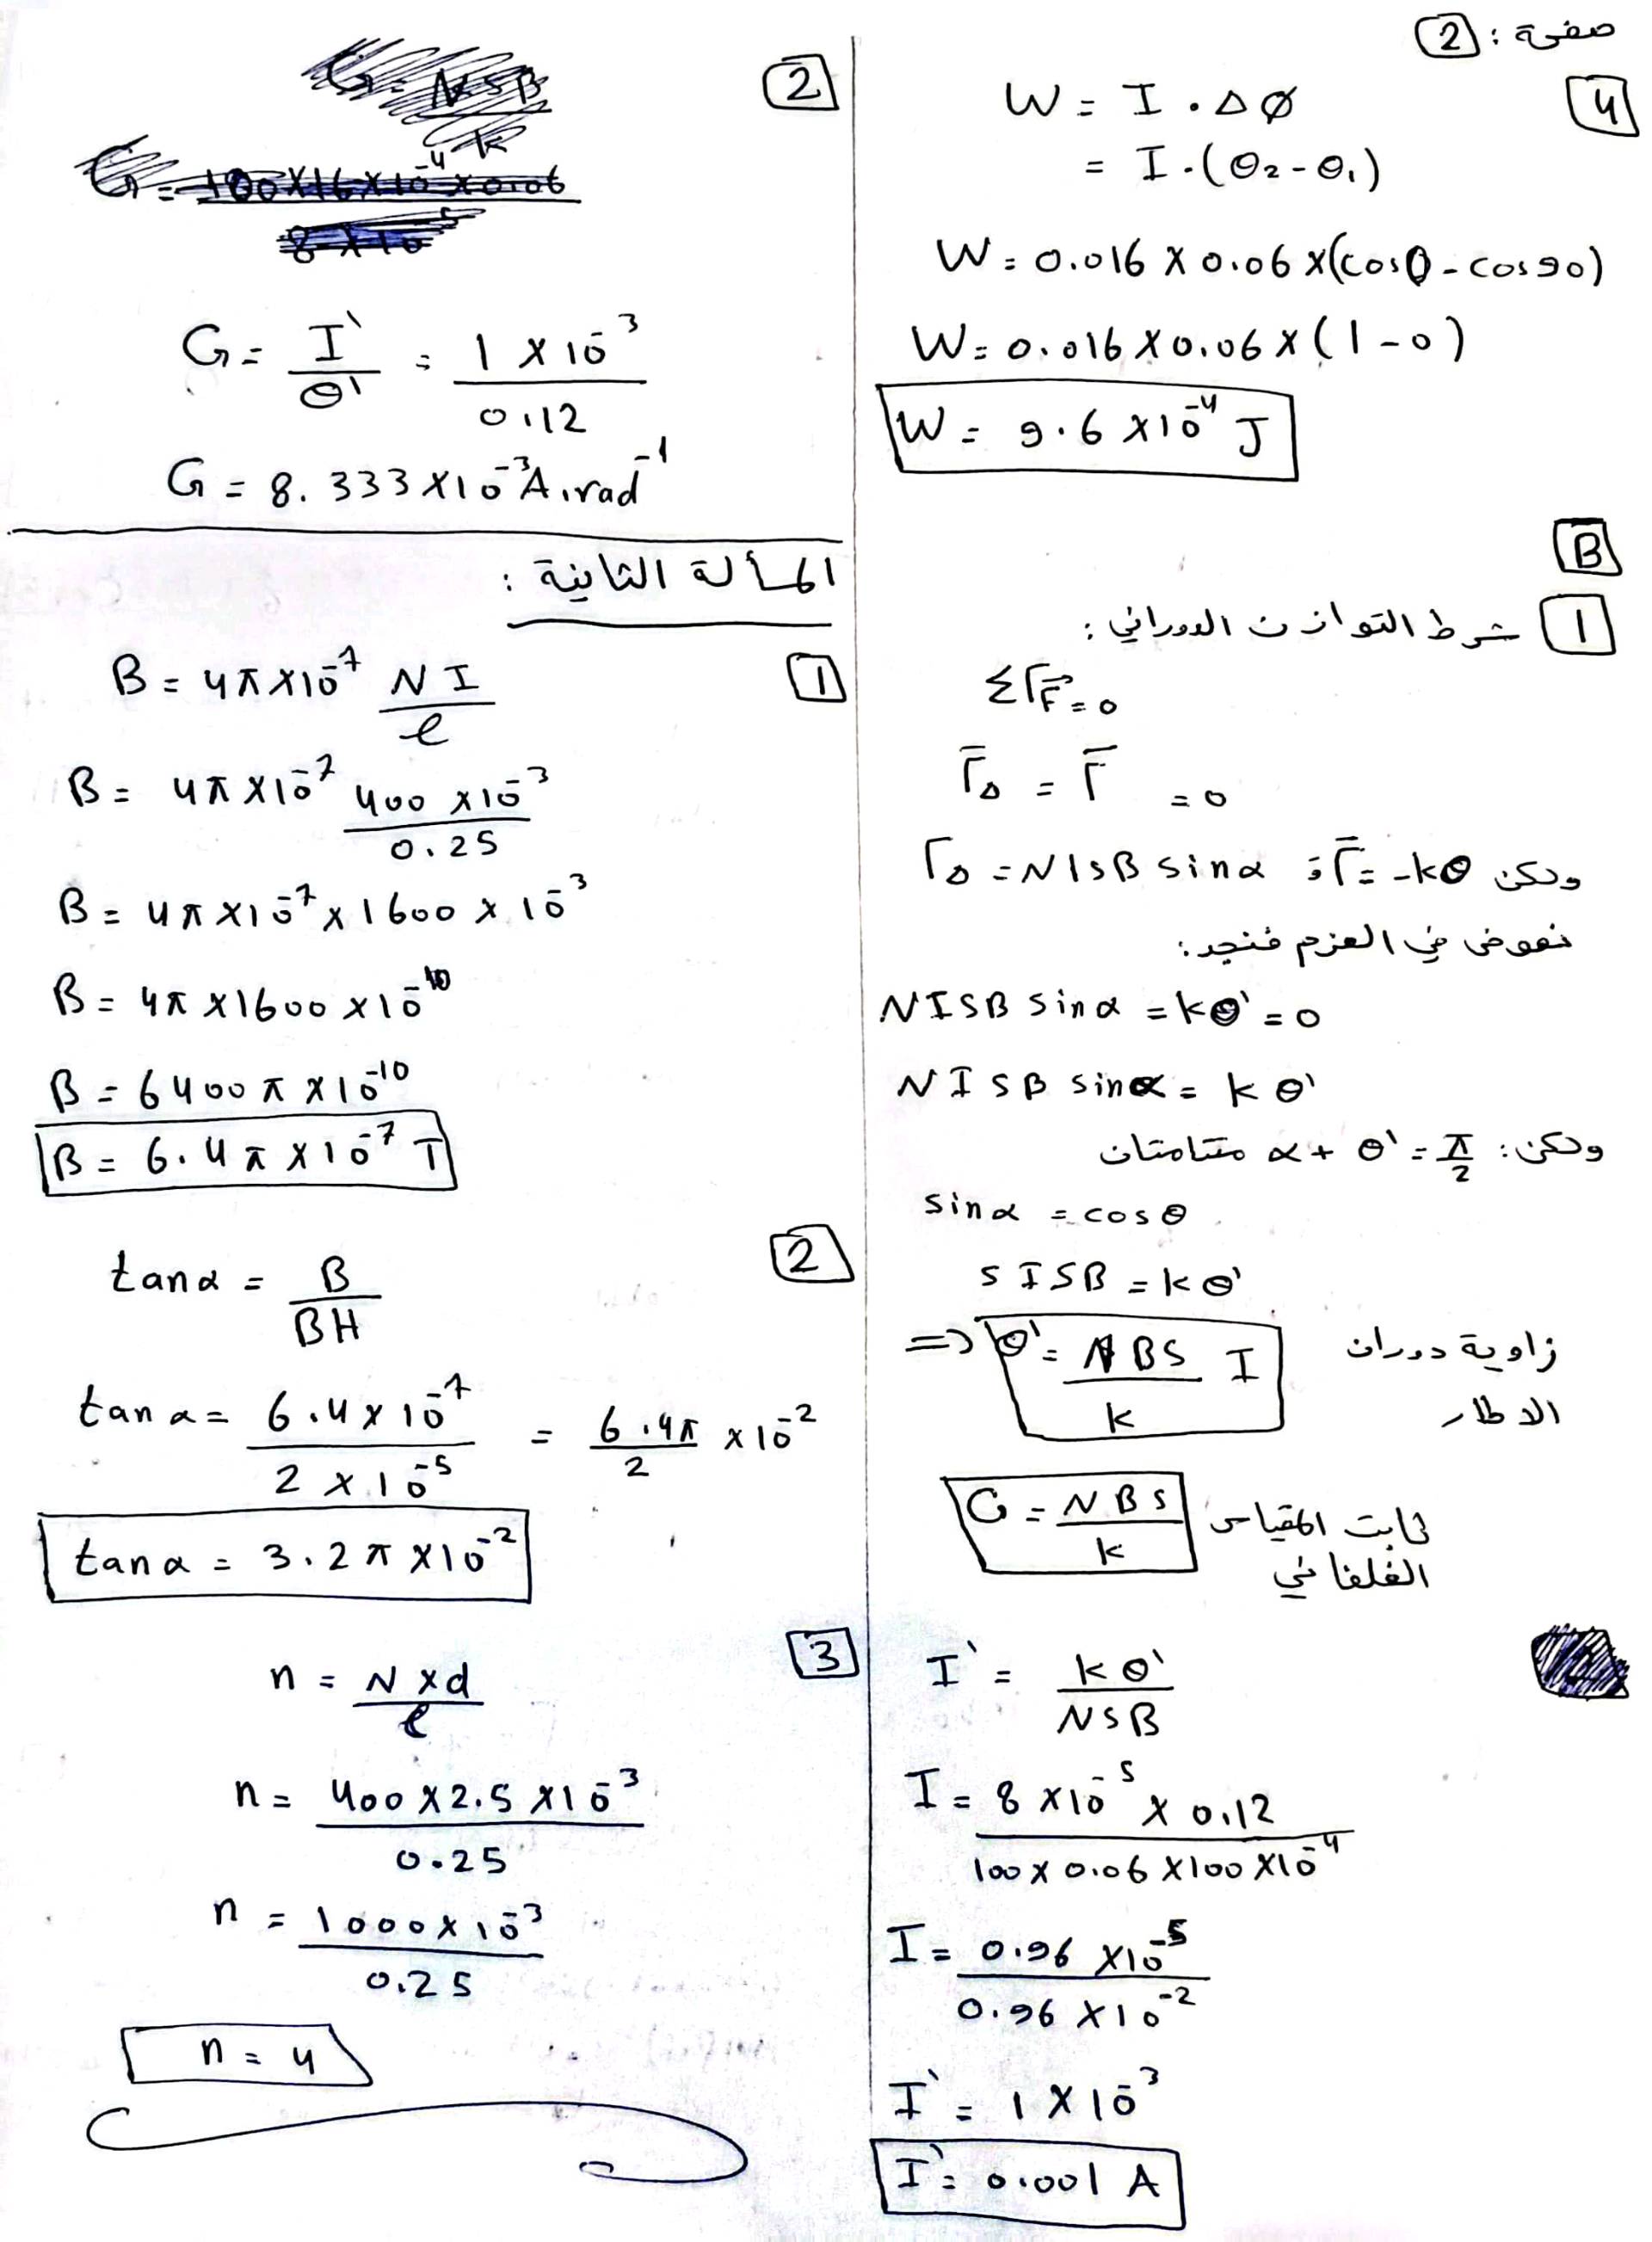 صفحة : 2
4
W = I . Δ Ø
= I . (θ₂ - θ₁)
W = 0.016 x 0.06 x (cos0 - cos90)
W = 0.016 x 0.06 x (1 - 0)
W = 9.6 x10⁻⁴ J
B
1 شرط التوازن الدوراني :
ΣΓ⃗F⃗ = 0
Γ̄Δ = Γ̄ = 0
ولكن ΓΔ = NISB sinα ؛ Γ̄ = -kθ
نعوض في العزم فنجد :
NISB sinα = kθ' = 0
NISB sinα = kθ'
ولكن : α + θ' = π/2 متتامتان
sinα = cosθ
SISB = kθ'
=> θ' = NBS/k I زاوية دوران
الاطار
G = NBS/k ثابت المقياس
الغلفاني
I` = kθ'/NSB
I = 8 x10⁻⁵ x 0.12 / 100 x 0.06 x 100 x10⁻⁴
I = 0.96 x10⁻⁵ / 0.96 x10⁻²
I` = 1 x 10⁻³
I` = 0.001 A
2
G = I`/θ' = 1 x 10⁻³ / 0.12
G = 8.333 x10⁻³ A.rad⁻¹
المسألة الثانية :
1
B = 4π x10⁻⁷ NI/l
B = 4π x10⁻⁷ 400 x10⁻³ / 0.25
B = 4π x10⁻⁷ x 1600 x 10⁻³
B = 4π x 1600 x 10⁻¹⁰
B = 6400 π x 10⁻¹⁰
B = 6.4 π x 10⁻⁷ T
2
tanα = B/BH
tanα = 6.4 x 10⁻⁷ / 2 x 10⁻⁵ = 6.4π/2 x 10⁻²
tanα = 3.2 π x10⁻²
3
n = N x d / l
n = 400 x 2.5 x10⁻³ / 0.25
n = 1000 x 10⁻³ / 0.25
n = 4